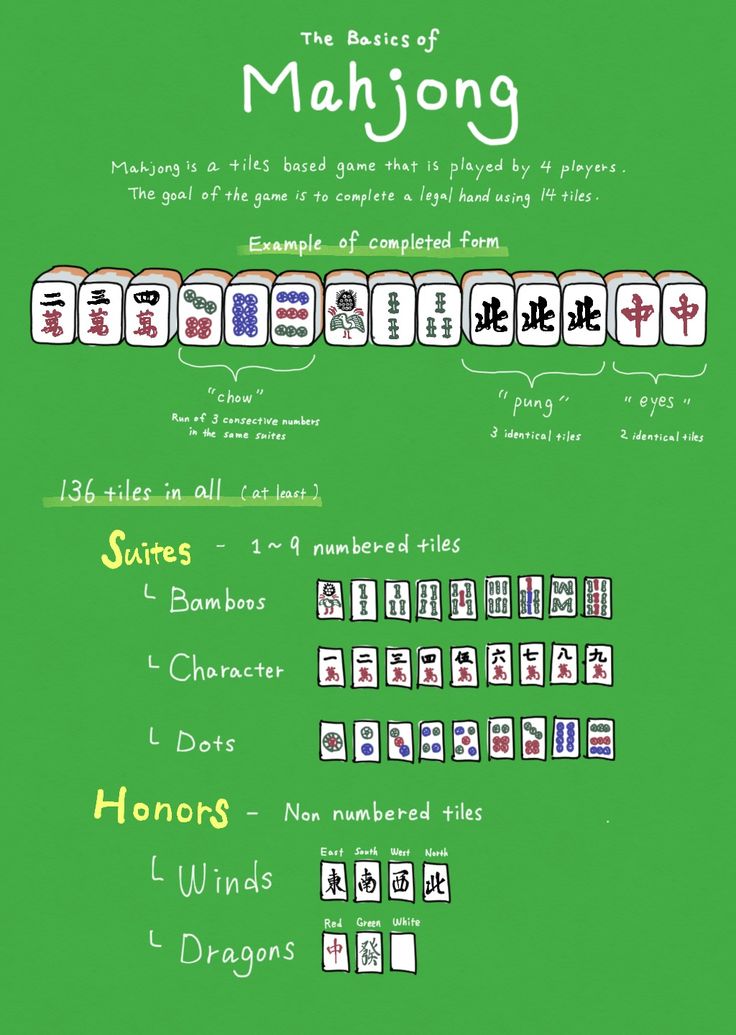 The Basics of
Mahjong
Mahjong is a tiles based game that is played by 4 players.
The goal of the game is to complete a legal hand using 14 tiles.
Example of completed form
二萬 三萬 四萬 北 北 北 中 中
"chow"
Run of 3 consective numbers
in the same suites
"pung"
3 identical tiles
"eyes"
2 identical tiles
136 tiles in all (at least)
Suites - 1~9 numbered tiles
Bamboos
Character 一萬 二萬 三萬 四萬 伍萬 六萬 七萬 八萬 九萬
Dots
Honors - Non numbered tiles
East South West North
Winds 東 南 西 北
Red Green White
Dragons 中 發